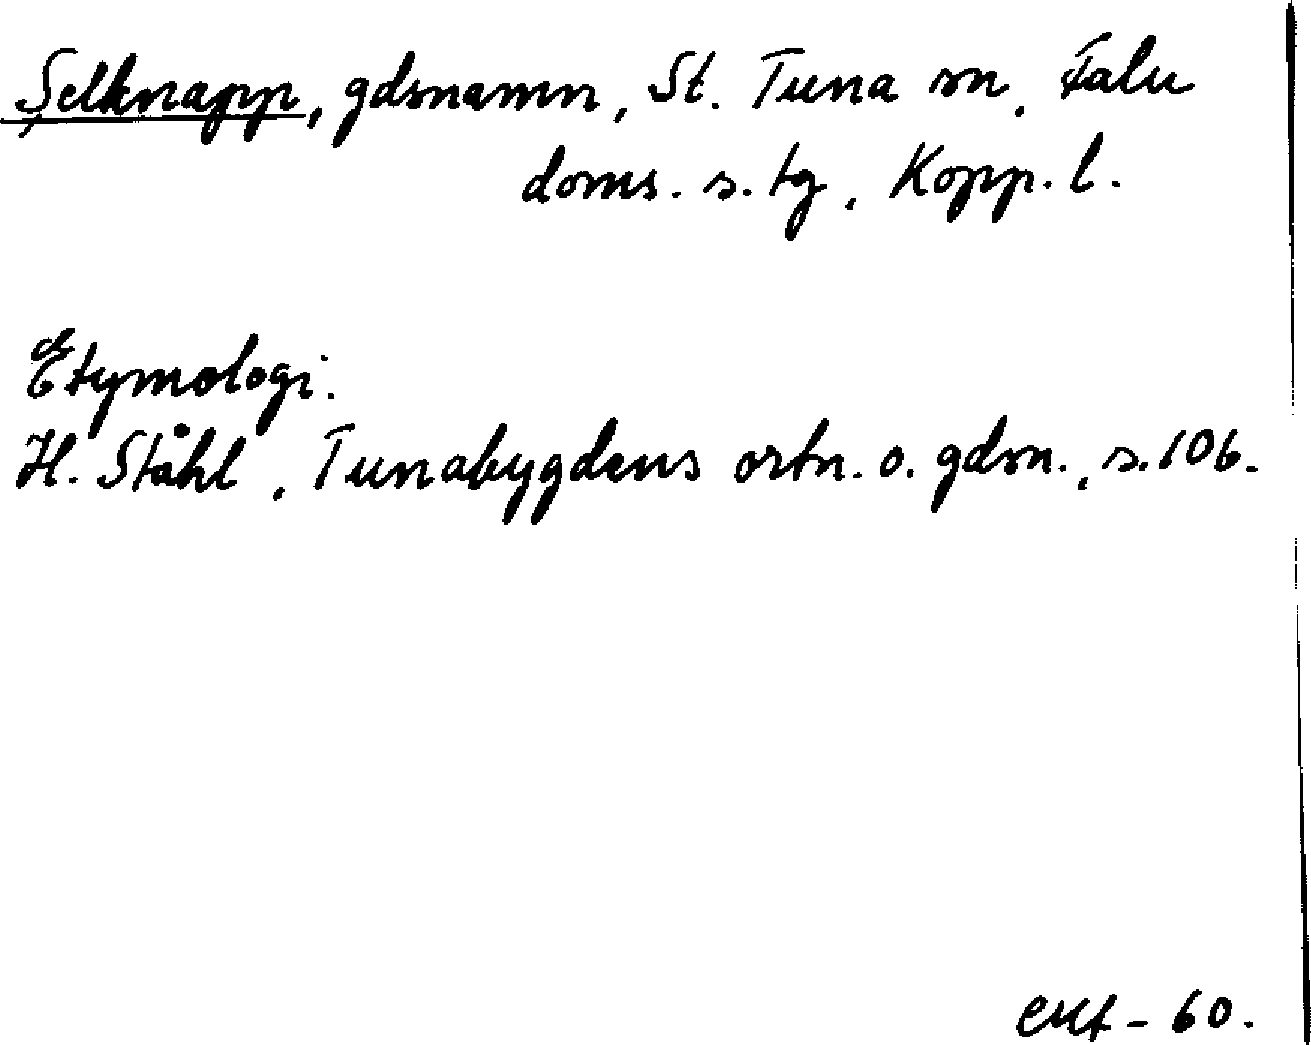 Selknapp, gdsnamn, St. Tuna sn, Falu
doms. s. tg, Kopp. l.
Etymologi.
H. Ståhl, Tunabygdens ortn. o. gdsn., s. 106.
- 60.